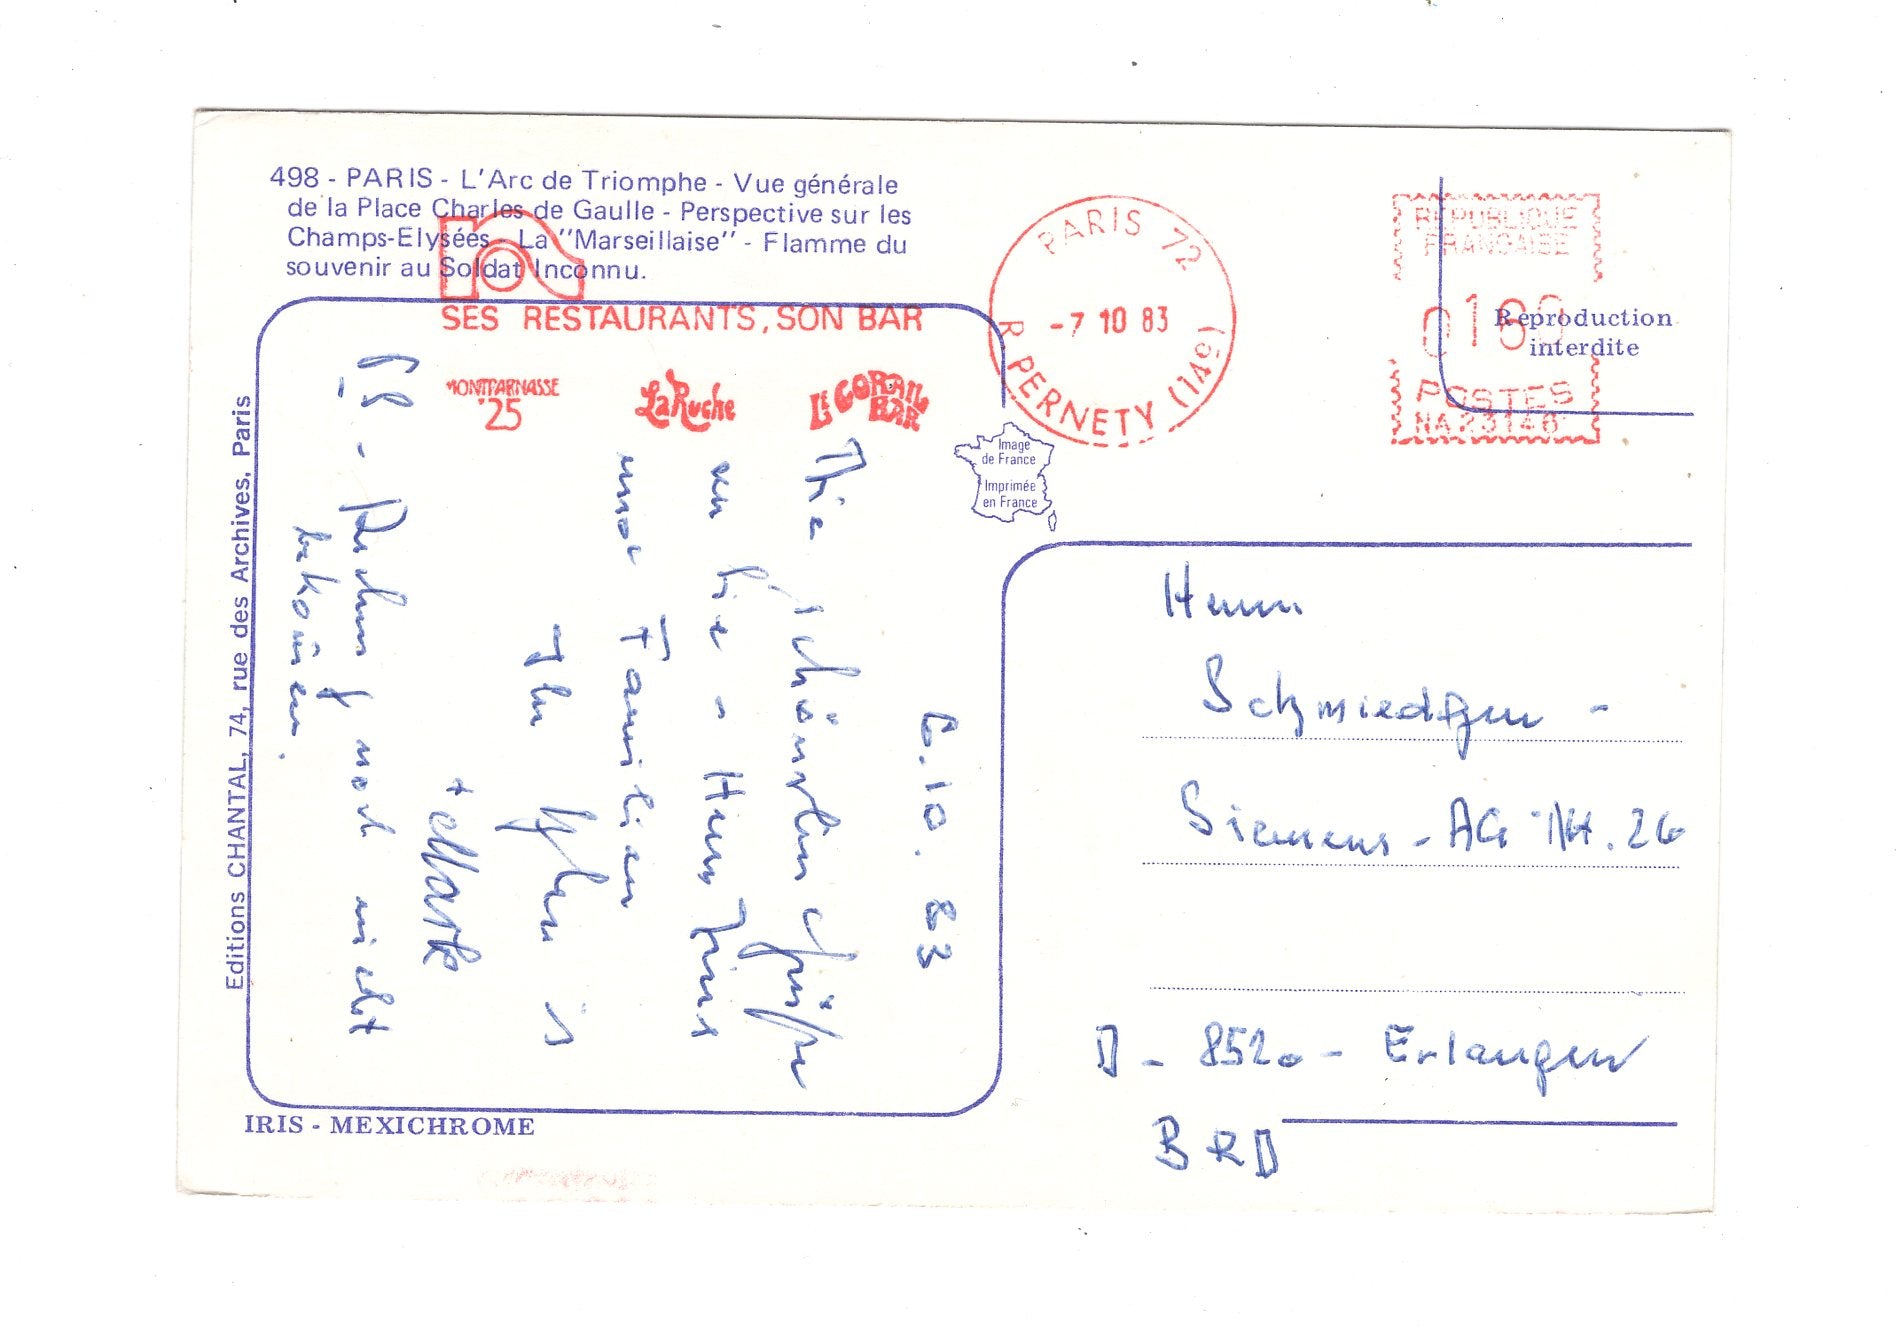 498 - PARIS - L'Arc de Triomphe - Vue générale
de la Place Charles de Gaulle - Perspective sur les
Champs-Elysées - La "Marseillaise" - Flamme du
souvenir au Soldat Inconnu.
SES RESTAURANTS, SON BAR
MONTPARNASSE
'25
La Ruche
LE CORAIL
BAR
PARIS 72
-7 10 83
R PERNETY (14e)
REPUBLIQUE
FRANCAISE
0160
POSTES
NA 23146
Reproduction
interdite
Image
de France
Imprimée
en France
Editions CHANTAL, 74, rue des Archives, Paris
6.10.83
Die schönsten Grüße
an Sie - Herrn
und Familien
Ihr
+
PS - noch nicht
bekommen.
Herrn
Schmiedgen -
Siemens - AG 26
D - 8520 - Erlangen
BRD
IRIS - MEXICHROME